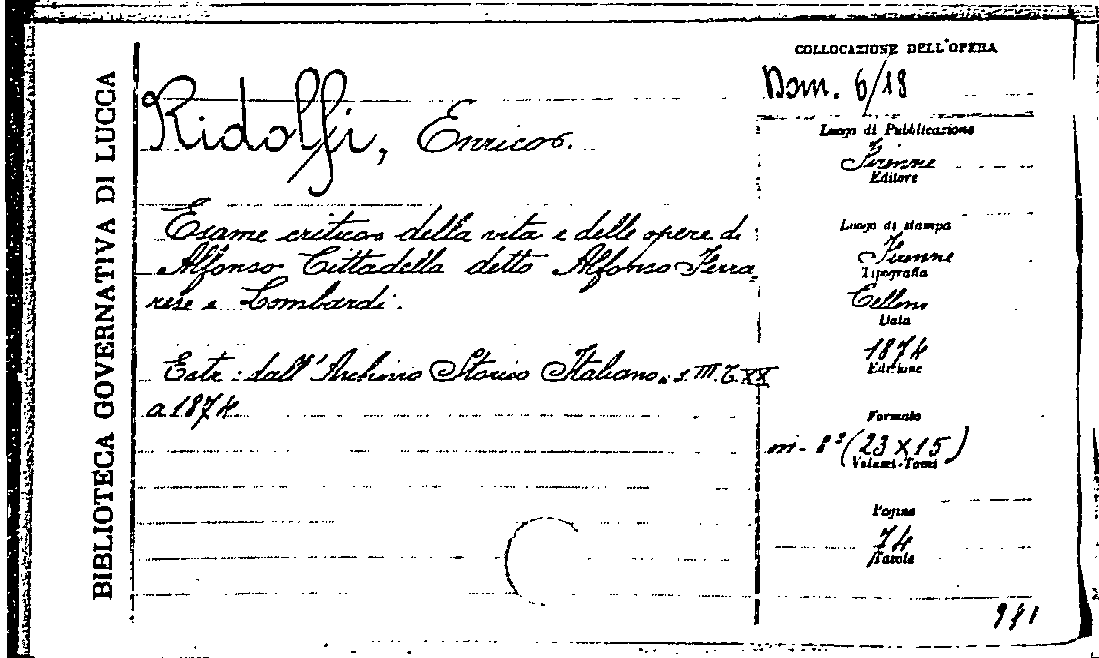 BIBLIOTECA GOVERNATIVA DI LUCCA
Ridolfi, Enrico.
Esame critico della vita e delle opere di
Alfonso Cittadella detto Alfonso Ferra-
rese e Lombardi.
Estr: dall'Archivio Storico Italiano, s. III. T. XX
a 1874
COLLOCAZIONE DELL'OPERA
Dom. 6/18
Luogo di Pubblicazione
Firenze
Editore
Luogo di stampa
Firenze
Tipografia
Cellini
Data
1874
Edizione
Formato
in-8° (23 X 15)
Volumi-Tomi
Pagine
74
Tavole